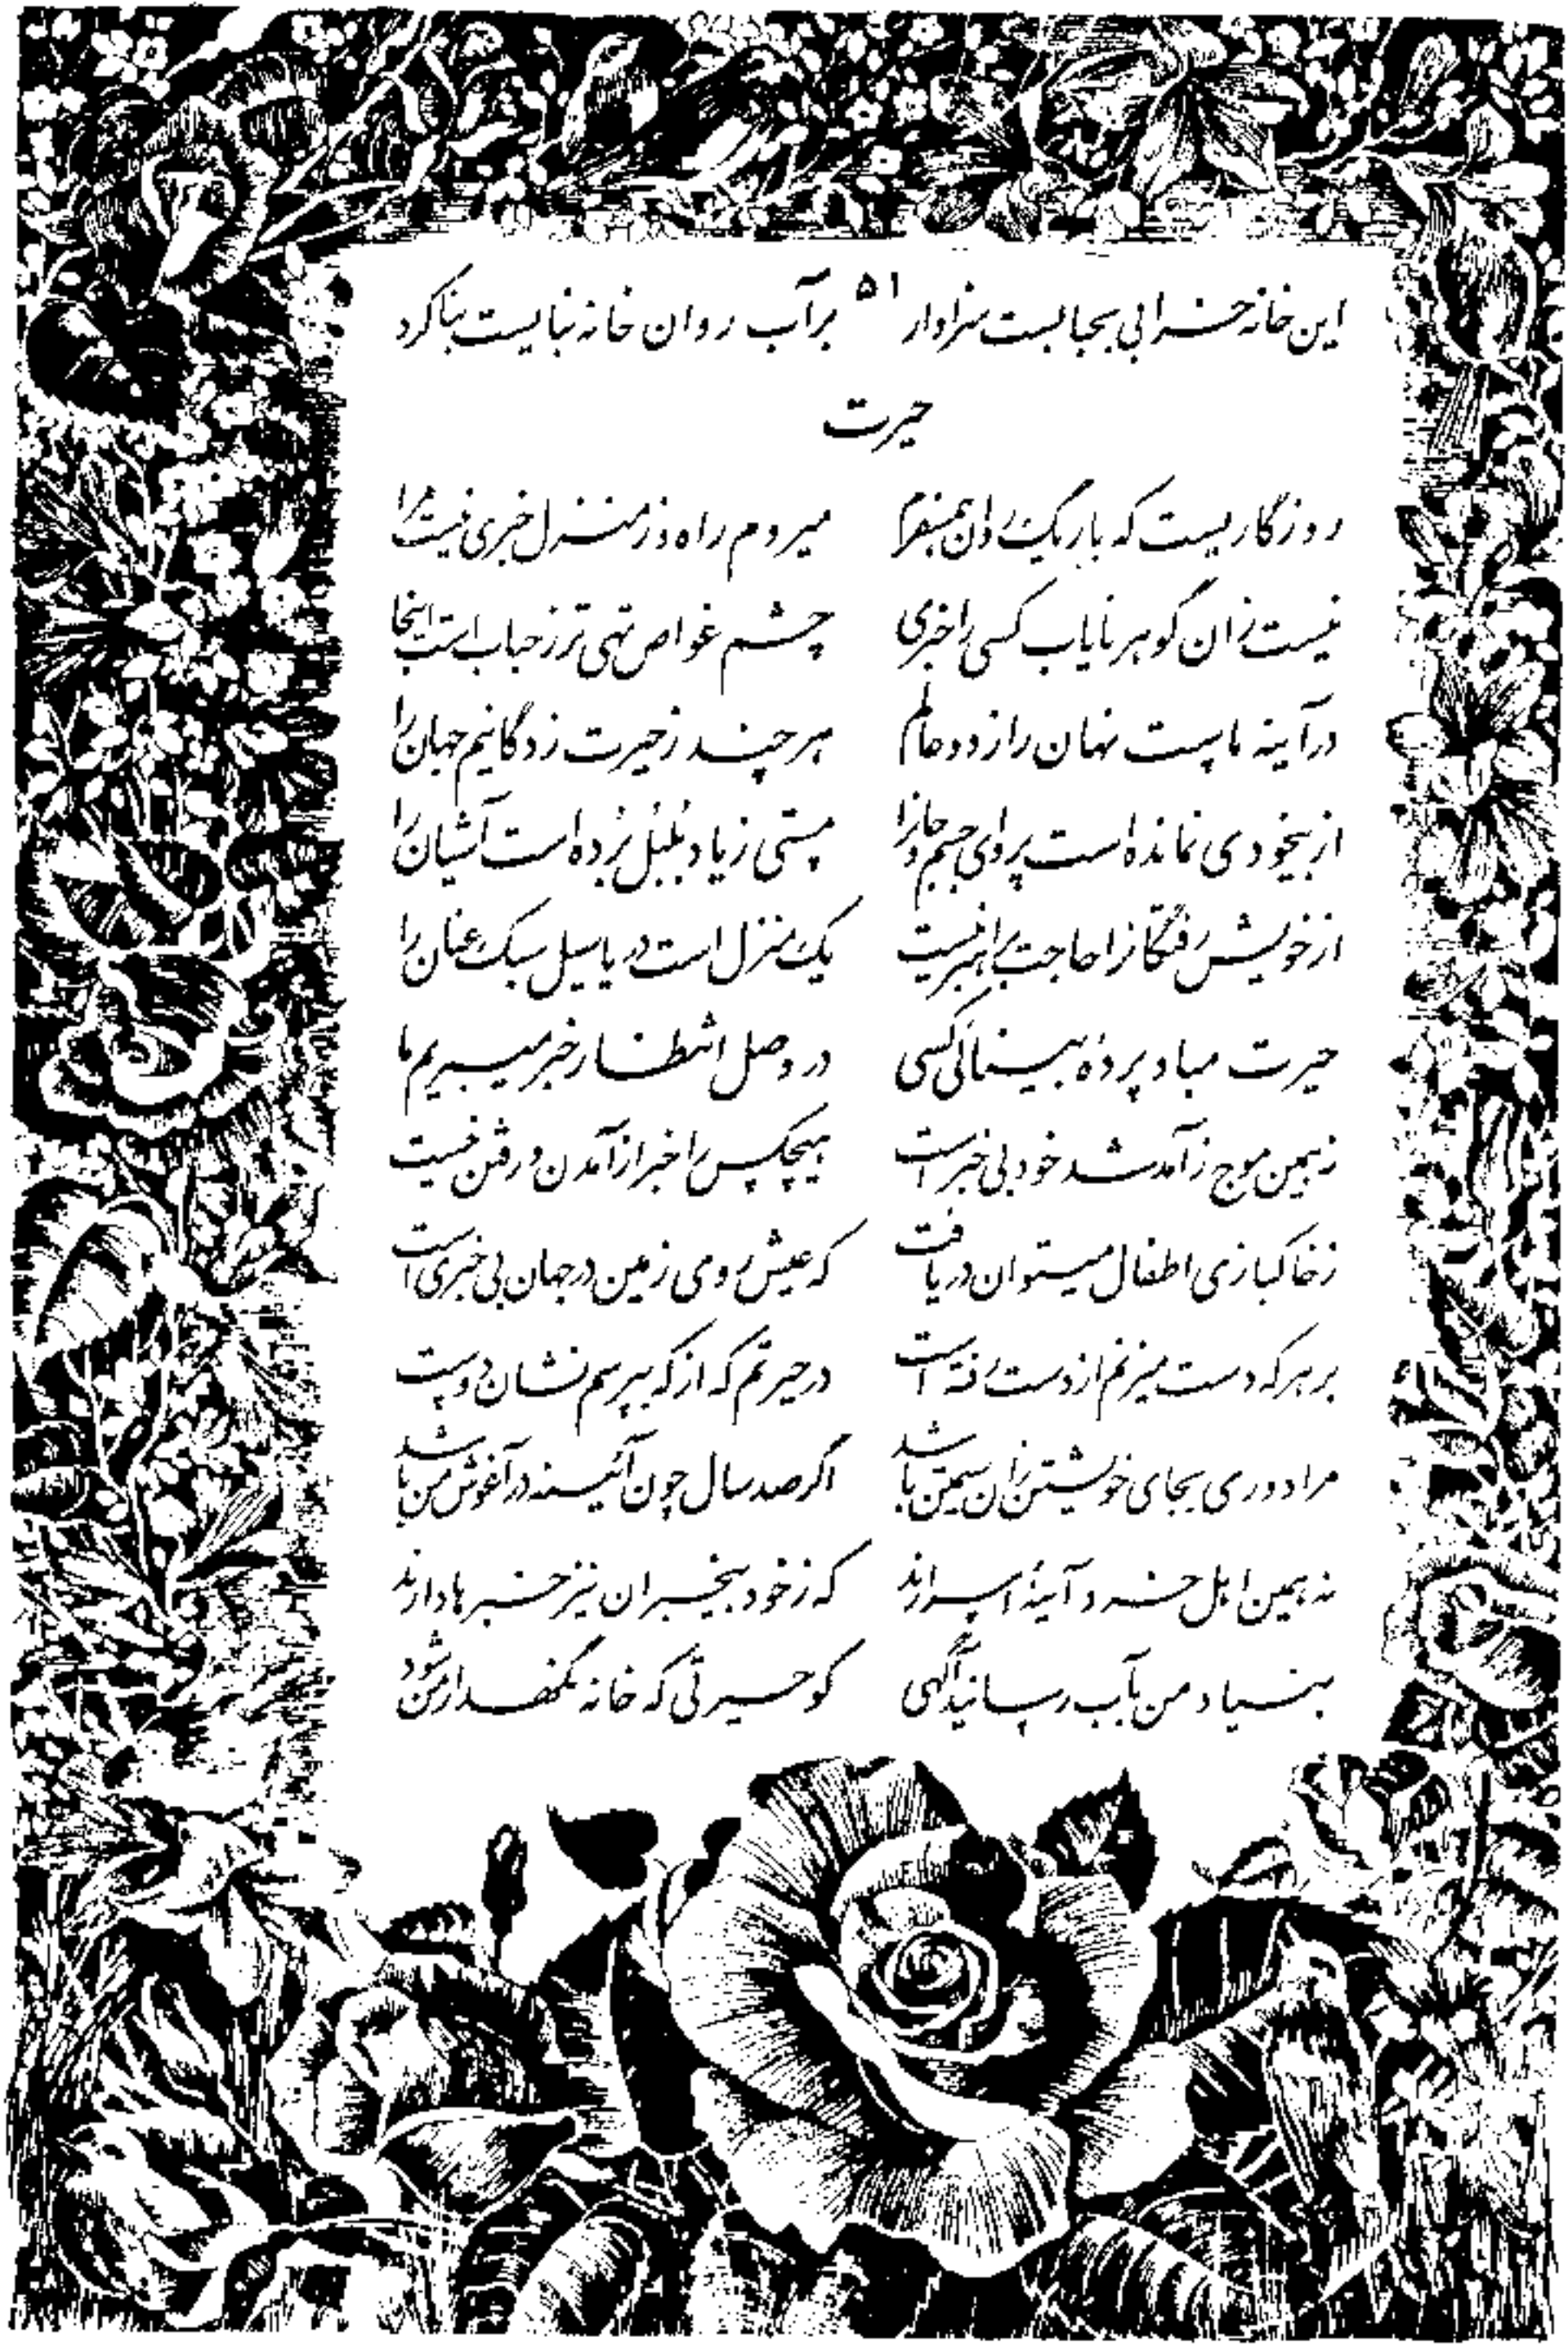 ۵۱
این خانه خرابی بحبابست سزاوار    بر آب روان خانه نبایست بنا کرد
حیرت
روزگاریست که با ریگ روان همسفرم    میروم راه و ز منزل خبری نیست مرا
نیست زان گوهر نایاب کسی را خبری    چشم غواص تهی تر ز حباب است اینجا
در آینه ماست نهان راز دو عالم    هر چند ز حیرت زدگانیم جهان را
از بیخودی نمانده است پروای جسم و جانرا    مستی ز یاد بلبل برده است آشیان را
از خویش رفتگانرا حاجت براهبر نیست    یک منزل است دریا سیل سبک عنان را
حیرت مباد پرده بینائی کسی    در وصل انتظار خبر میبریم ما
نه همین موج ز آمد شد خود بی خبر است    هیچکس را خبر از آمدن و رفتن نیست
ز خاکبازی اطفال میتوان دریافت    که عیش روی زمین در جهان بی خبری است
بر هر که دست میزنم از دست رفته است    در حیرتم که از که بپرسم نشان دوست
مرا دوری بجای خویشتن زان سیمتن باشد    اگر صد سال چون آئینه در آغوش من باشد
نه همین اهل خرد آینهٔ اسرارند    که ز خود بیخبران نیز خبرها دارند
بنیاد من بآب رسانید آگهی    کو حیرتی که خانه نگهدار من شود